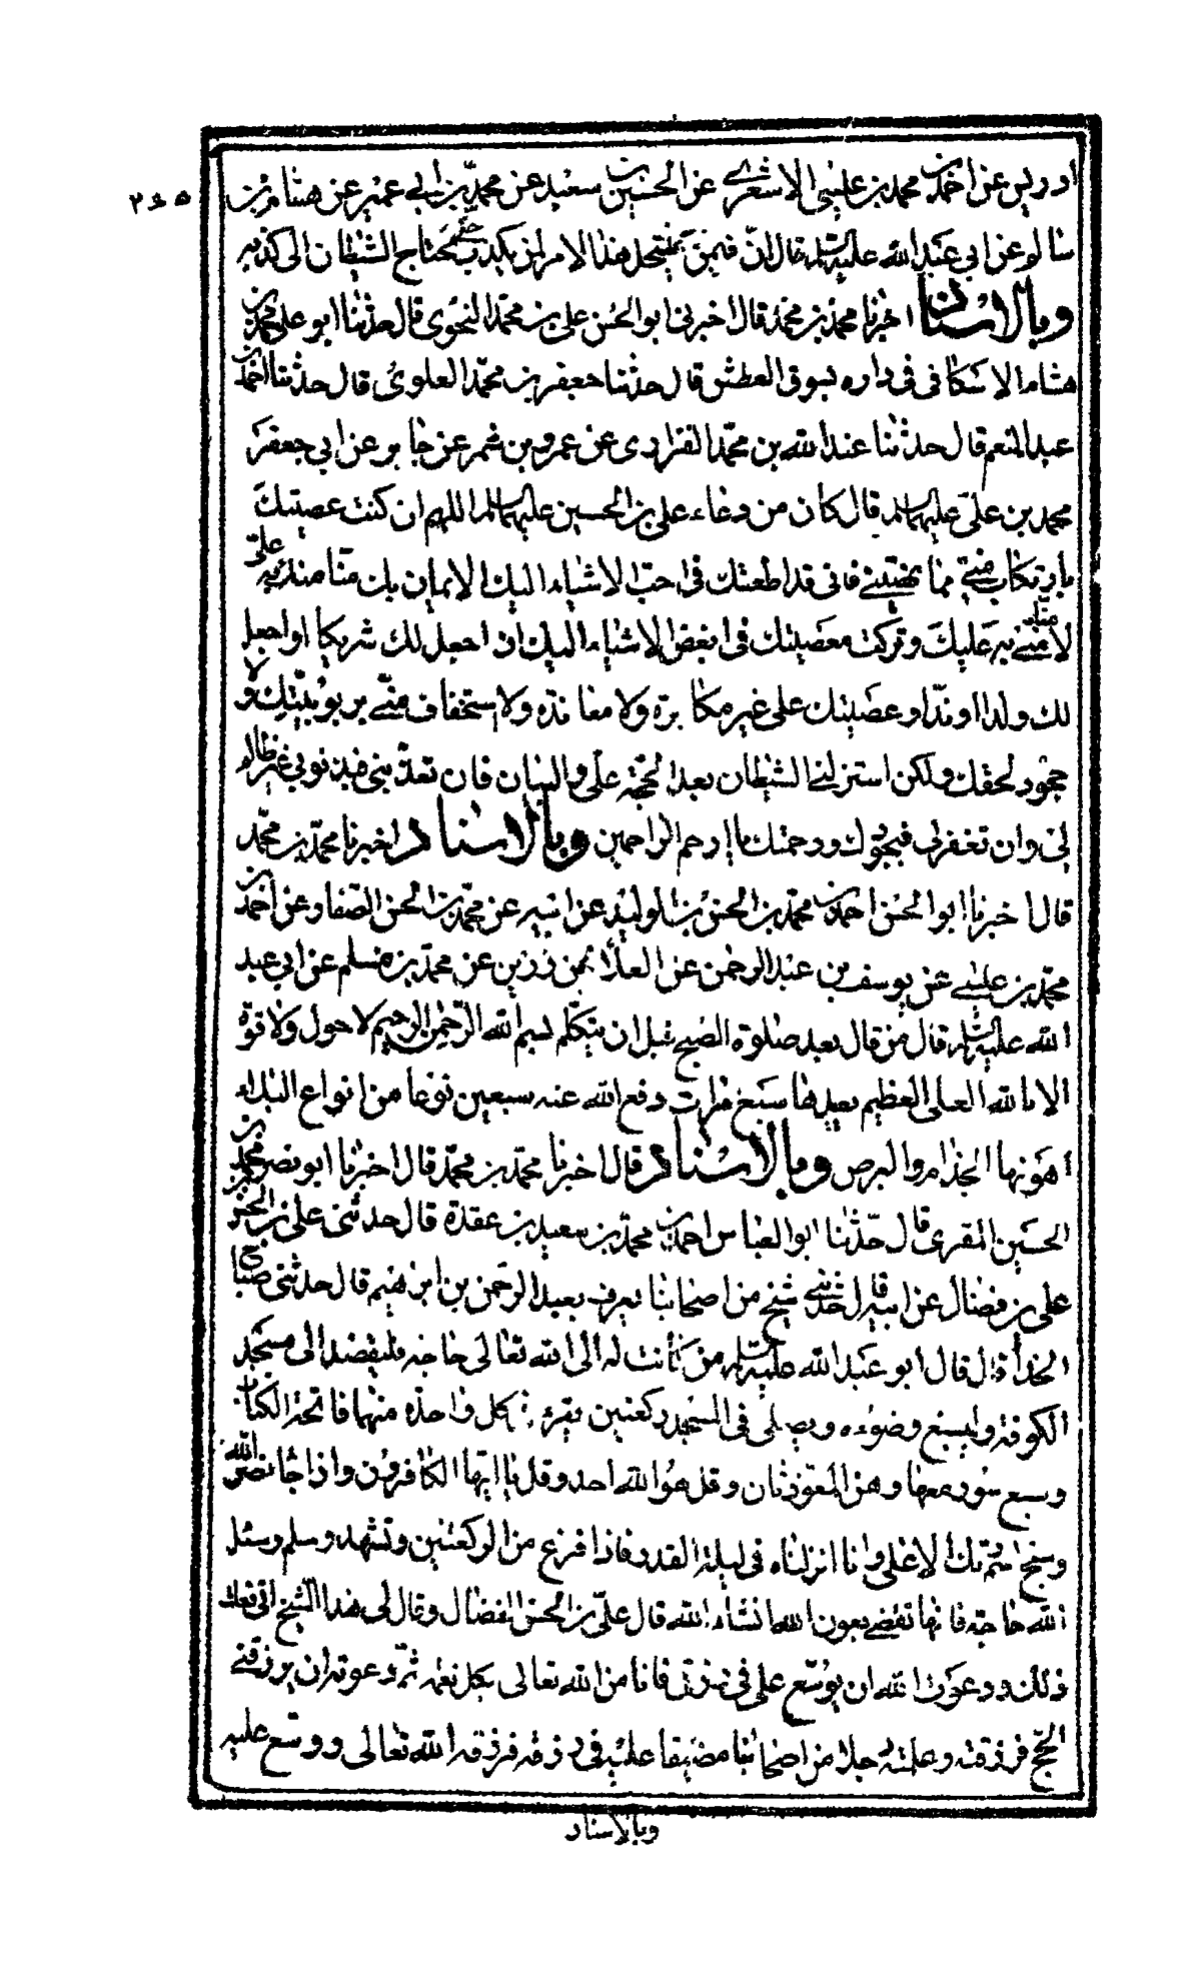 ٢٦٥
ادريس عن احمد بن محمد بن عيسى الاشعري عن الحسين بن سعيد عن محمد بن ابي عمير عن هشام بن
سالم عن ابي عبد الله عليه السلام قال ان فيمن ينتحل هذا الامر لمن يكذب حتى يحتاج الشيطان الى كذبه
وبالاسناد اخبرنا محمد بن محمد قال اخبرني ابو الحسن علي بن محمد النحوي قال حدثنا ابو علي محمد بن
همام الاسكافي في داره بسوق العطش قال حدثنا جعفر بن محمد العلوي قال حدثنا احمد بن
عبد المنعم قال حدثنا عبد الله بن محمد الفزاري عن عمرو بن شمر عن جابر عن ابي جعفر
محمد بن علي عليهما السلام قال كان من دعاء علي بن الحسين عليهما السلام اللهم ان كنت عصيتك
بارتكاب شيء مما نهيتني فاني قد اطعتك في احب الاشياء اليك الايمان بك منا منك به علي
لا منا مني به عليك وتركت معصيتك في ابغض الاشياء اليك ان اجعل لك شريكا او اجعل
لك ولدا او ندا وعصيتك على غير مكابرة ولا معاندة ولا استخفاف مني بربوبيتك ولا
جحود لحقك ولكن استزلني الشيطان بعد الحجة علي والبيان فان تعذبني فبذنوبي غير ظالم
لي وان تغفر لي فبجودك ورحمتك يا ارحم الراحمين وبالاسناد اخبرنا محمد بن محمد
قال اخبرنا ابو الحسن احمد بن محمد بن الحسن بن الوليد عن ابيه عن محمد بن الحسن الصفار عن احمد بن
محمد بن عيسى عن يوسف بن عبد الرحمن عن العلاء بن رزين عن محمد بن مسلم عن ابي عبد
الله عليه السلام قال من قال بعد صلوة الصبح قبل ان يتكلم بسم الله الرحمن الرحيم لا حول ولا قوة
الا بالله العلي العظيم يعيدها سبع مرات دفع الله عنه سبعين نوعا من انواع البلاء
اهونها الجذام والبرص وبالاسناد قال اخبرنا محمد بن محمد قال اخبرنا ابو نصر محمد بن
الحسين المقري قال حدثنا ابو العباس احمد بن محمد بن سعيد بن عقدة قال حدثني علي بن الحسن بن
علي بن فضال عن ابيه قال حدثني شيخ من اصحابنا يعرف بعبد الرحمن بن ابراهيم قال حدثني صباح
الحذاء قال قال ابو عبد الله عليه السلام من كانت له الى الله تعالى حاجة فليقصد الى مسجد
الكوفة وليسبغ وضوءه ويصلي في المسجد ركعتين يقرء في كل واحدة منهما فاتحة الكتاب
وسبع سور معها وهن المعوذتان وقل هو الله احد وقل يا ايها الكافرون واذا جاء نصر الله
وسبح اسم ربك الاعلى وانا انزلناه في ليلة القدر فاذا فرغ من الركعتين وتشهد وسلم وسئل
الله حاجته فانها تقضى بعون الله انشاء الله قال علي بن الحسن الفضال وقال لي هذا الشيخ اني فعلت
ذلك ودعوت الله ان يوسع علي في رزقي فانا من الله تعالى بكل نعمة ثم دعوته ان يرزقني
الحج فرزقته وعلمته رجلا من اصحابنا مضيقا عليه في رزقه فرزقه الله تعالى ووسع عليه
وبالاسناد